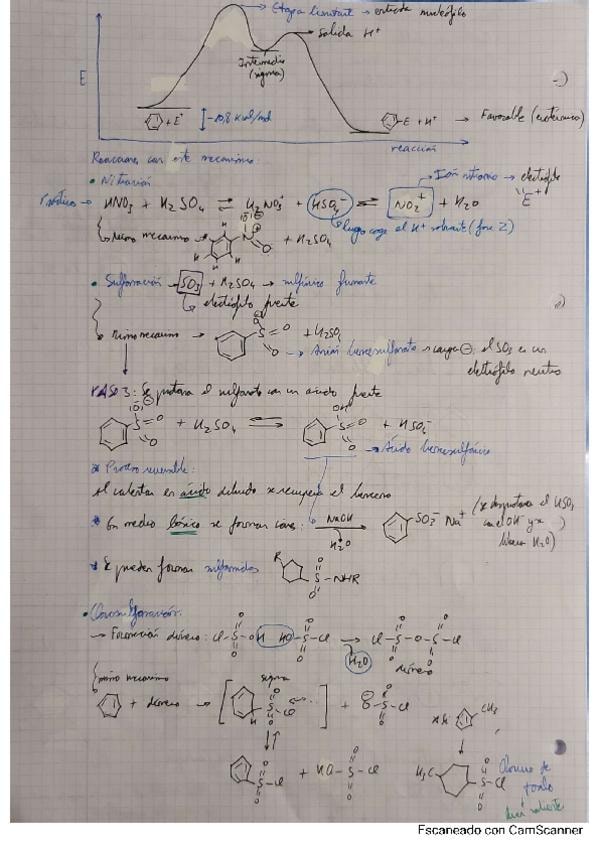 Etapa limitante → entrada nucleófilo
→ Salida H⁺
Intermedio
(sigma)
E
+ E⁺
-10,8 Kcal/mol
-E + H⁺ → Favorable (exotérmico)
reacción
Reacciones con este mecanismo:
• Nitración
→ HNO₃ + H₂SO₄ ⇌ H₂NO₃⁺ + HSO₄⁻ ⇌ NO₂⁺ + H₂O
Ión nitronio → electrófilo
"E⁺"
luego coge el H⁺
Mismo mecanismo
+ H₂SO₄
• Sulfonación → SO₃ + H₂SO₄ → sulfúrico fumante
electrófilo fuerte
Mismo mecanismo →
+ H₂SO₄
→ Anión bencenosulfonato → carga ⊖: el SO₃ es un
electrófilo neutro
PASO 3: Se protona el sulfonato con un ácido fuerte
+ H₂SO₄ ⇌ + HSO₄⁻
→ Ácido bencenosulfónico
* Proceso reversible:
Al calentar en ácido diluido se recupera el benceno
* En medio básico se forman sales:
NaOH
H₂O
SO₃⁻ Na⁺
(se desprotona el
con el OH⁻ y se
libera H₂O)
* Se pueden formar sulfamidas
R
S-NHR
• Clorosulfonación:
→ Formación dímero: Cl-S-OH HO-S-Cl → Cl-S-O-S-Cl
H₂O
dímero
mismo mecanismo
sigma
+ dímero →
CH₃
+ HO-S-Cl
H₃C
S-Cl
Cloruro de
tosilo